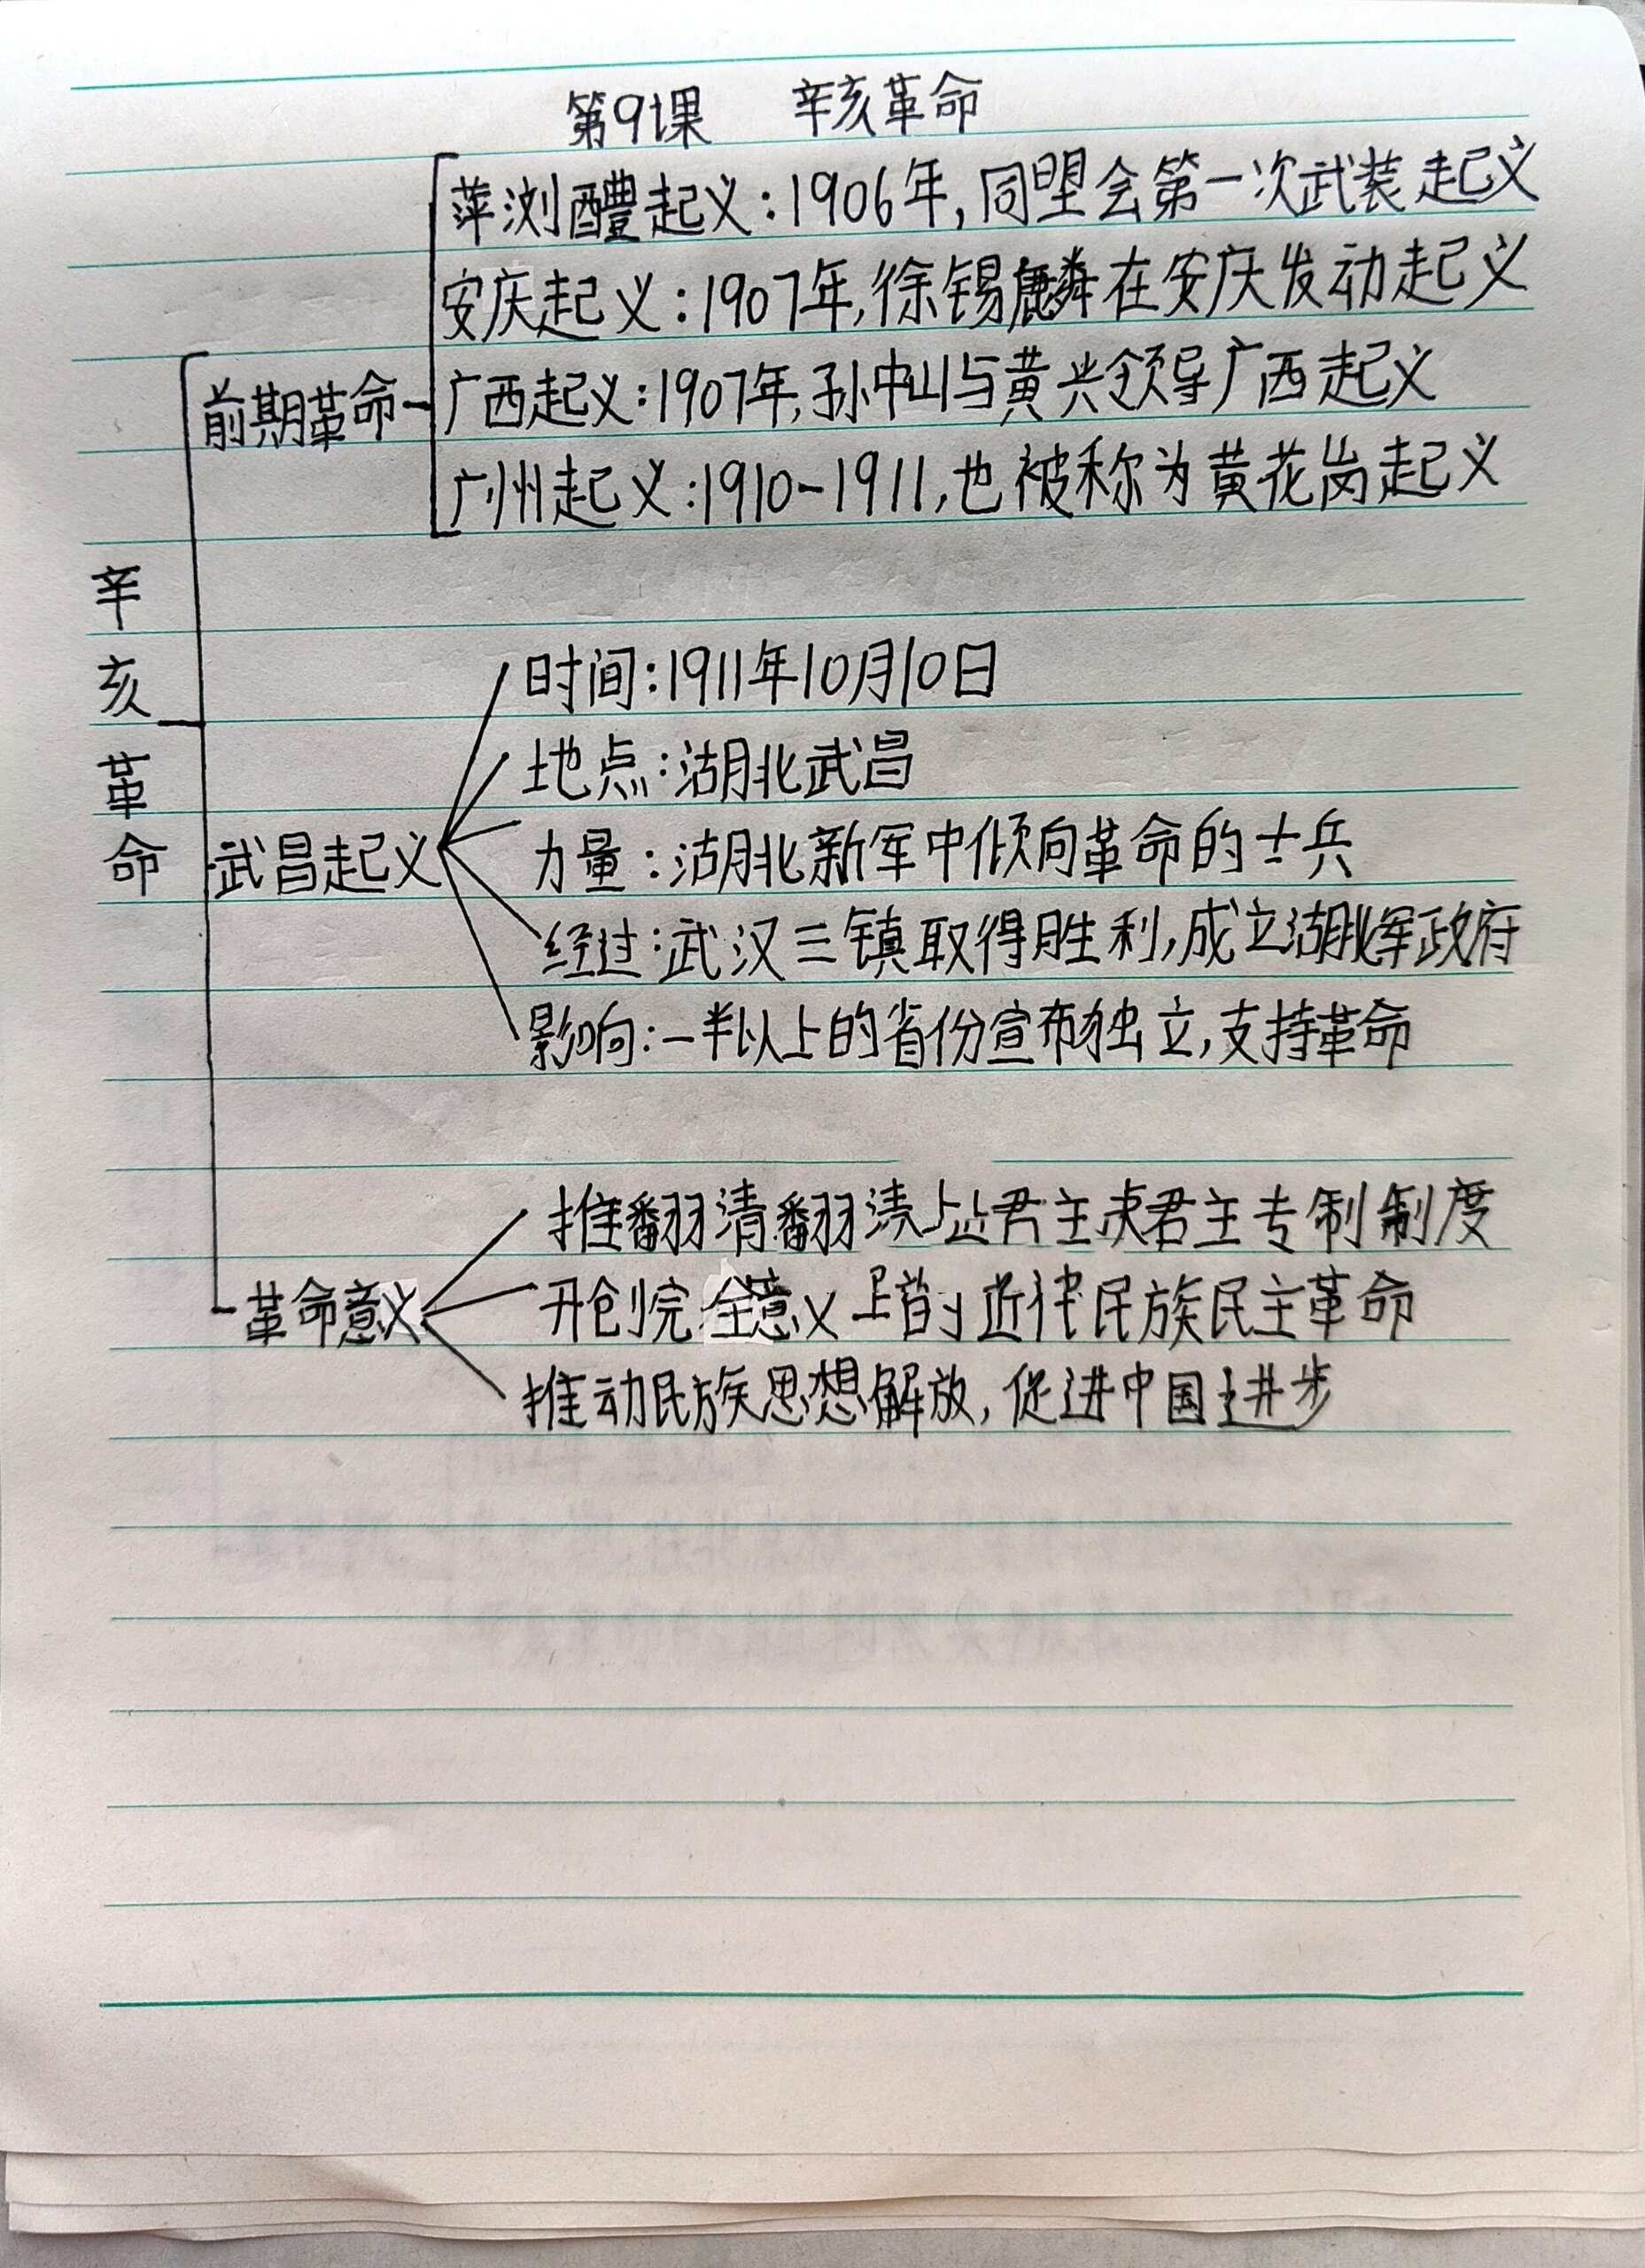 第9课 辛亥革命
萍浏醴起义:1906年,同盟会第一次武装起义
安庆起义:1907年,徐锡麟在安庆发动起义
前期革命
广西起义:1907年,孙中山与黄兴领导广西起义
广州起义:1910-1911,也被称为黄花岗起义
辛亥革命
时间:1911年10月10日
地点:湖北武昌
武昌起义
力量:湖北新军中倾向革命的士兵
经过:武汉三镇取得胜利,成立湖北军政府
影响:一半以上的省份宣布独立,支持革命
推翻清翻清 君主 君主专制制度
革命意义
开创完全意义上的近代民族民主革命
推动民族思想解放,促进中国进步